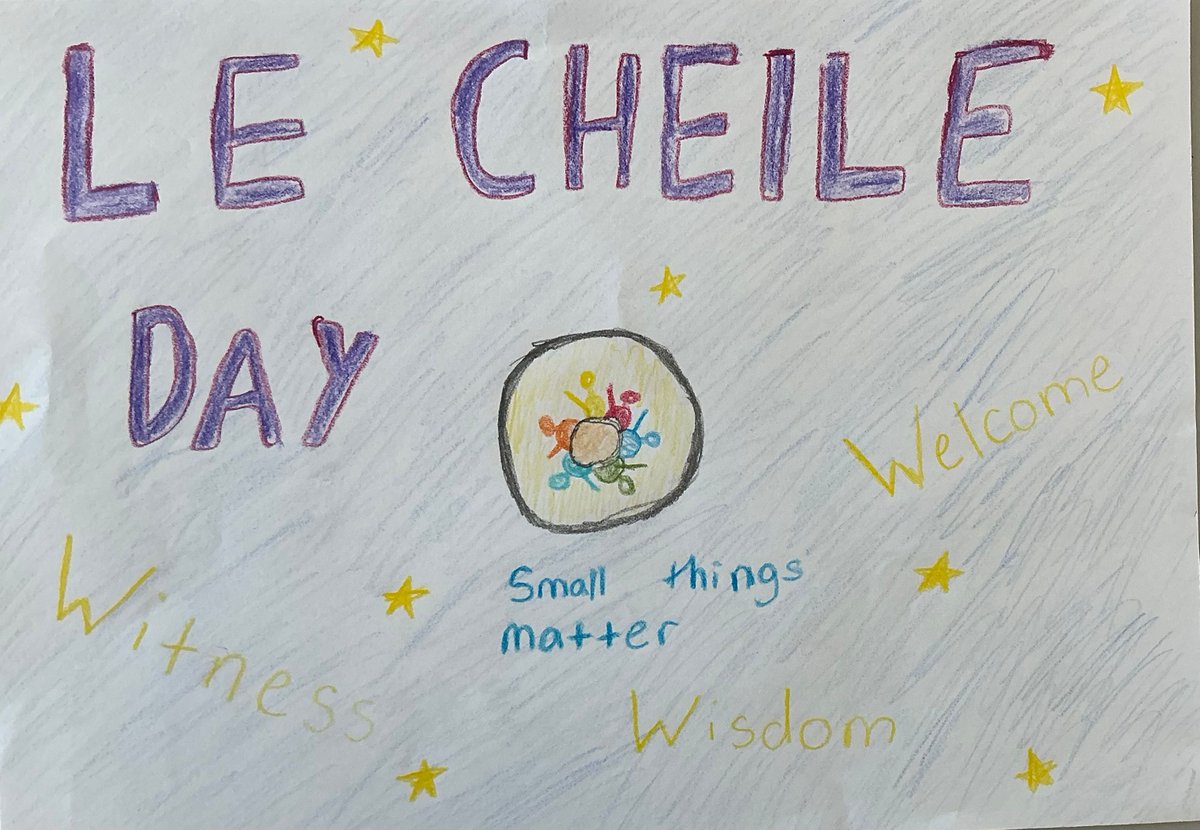 LE CHEILE
DAY
Welcome
Witness
Small things
matter
Wisdom